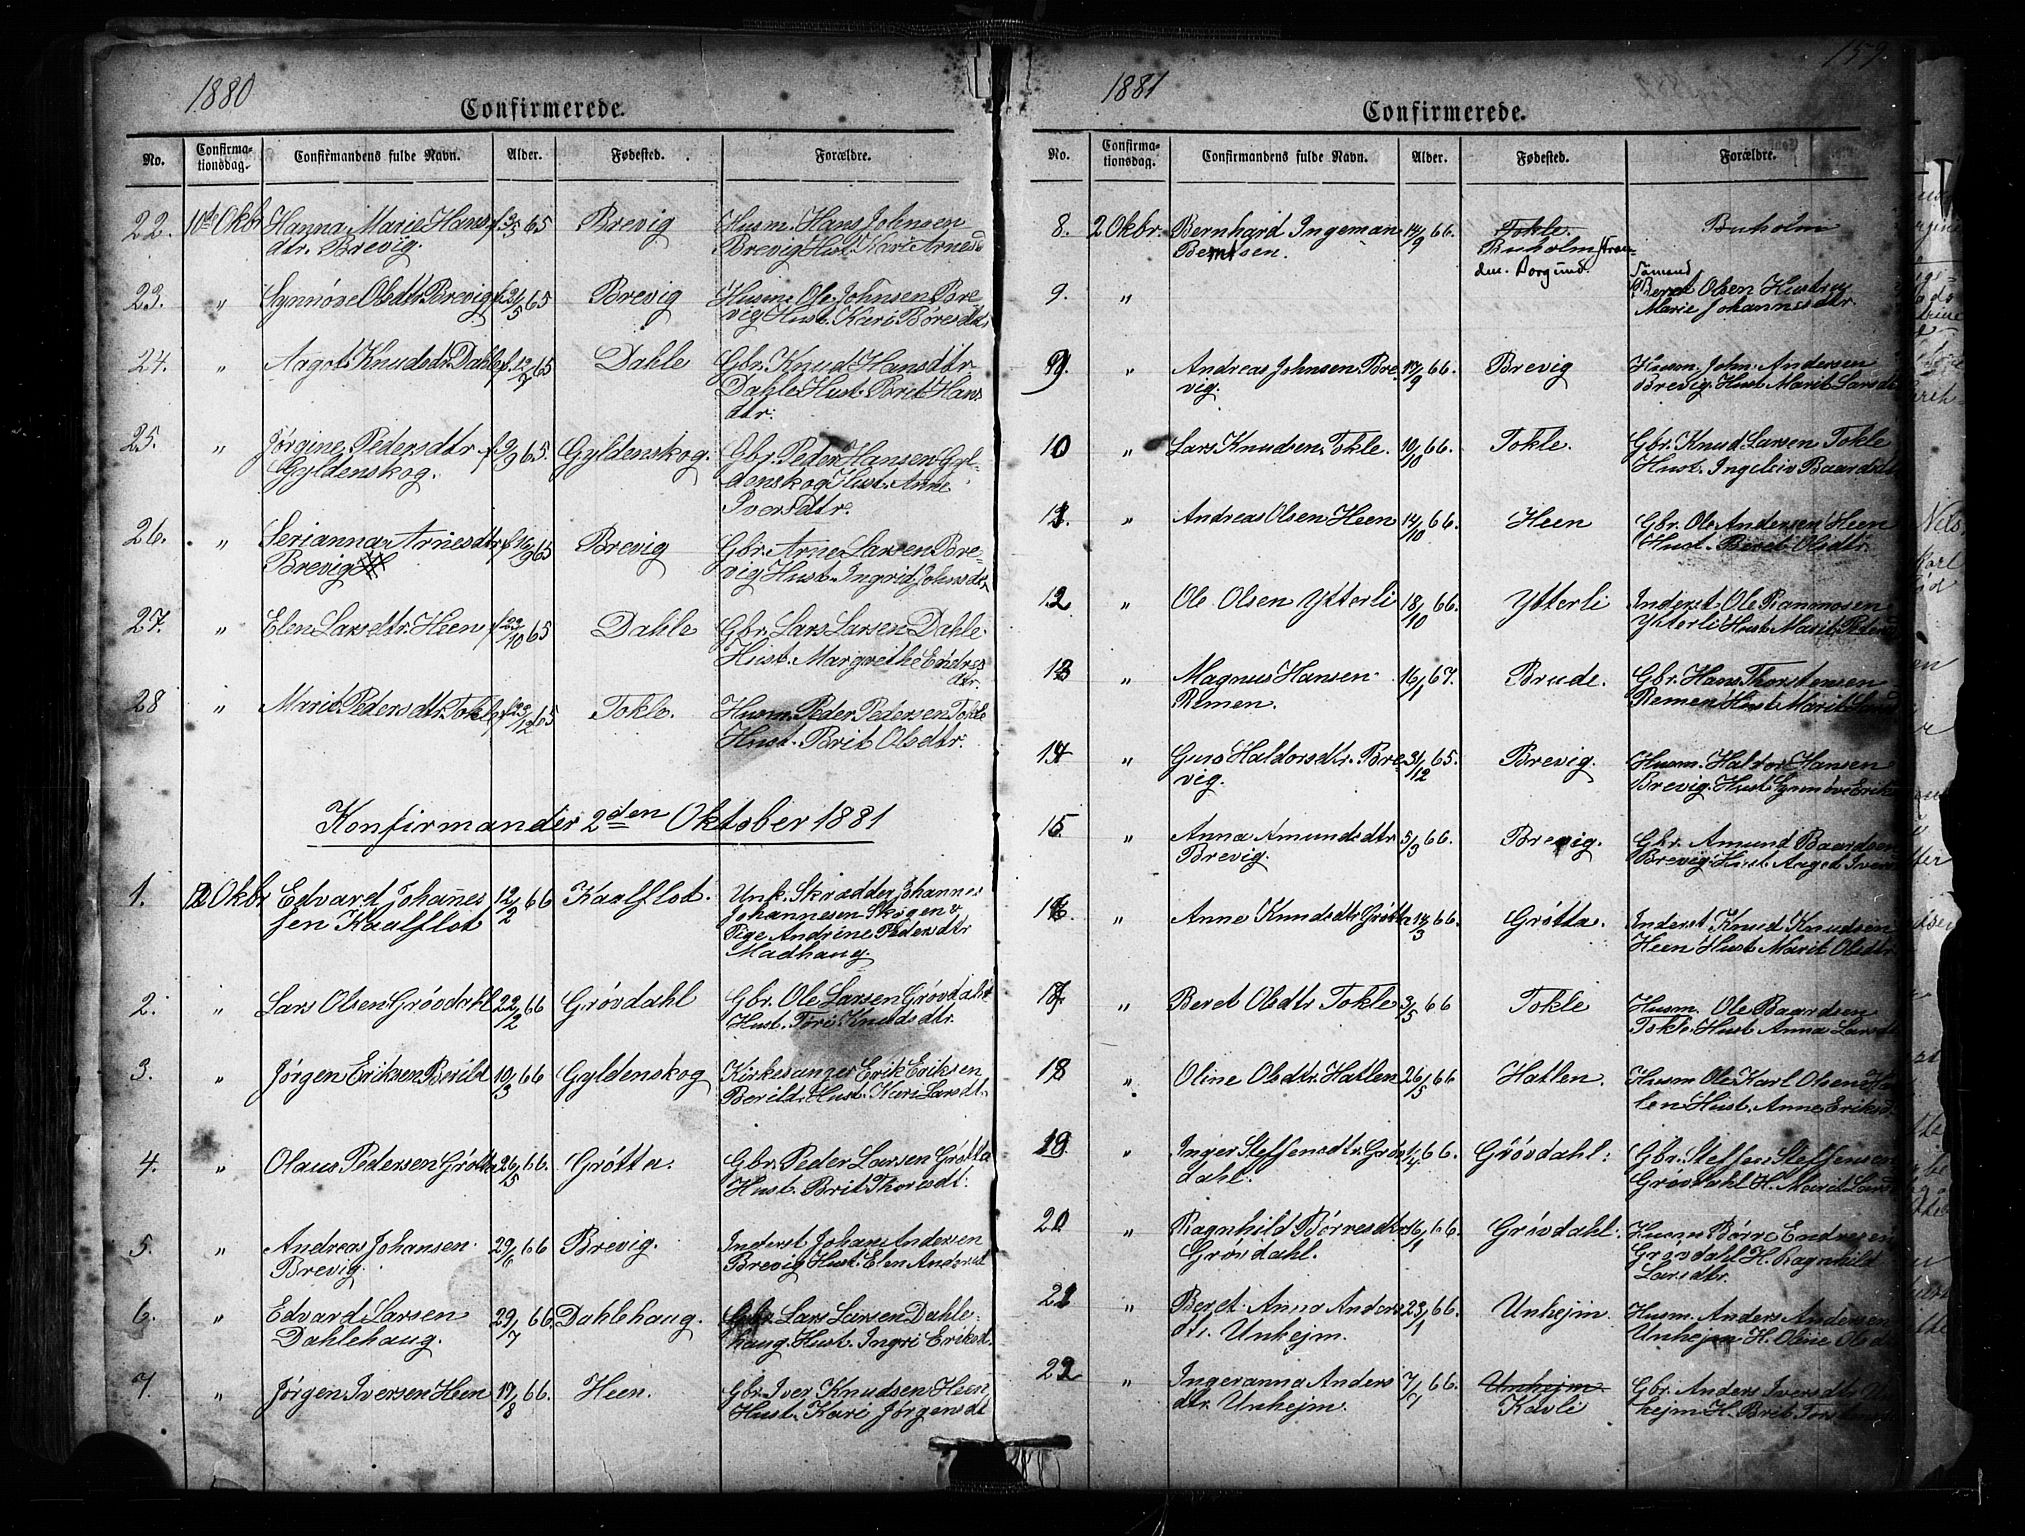 1880
Confirmerede.
No. Confirma-tionsdag. Confirmandens fulde Navn. Alder. Fødested. Forældre.
22. 10de Okbr Hanna Marie Hans f. 3/5 65 Brevig Husm. Hans Johnsen
dtr. Brevig. Brevig Hust. Mari Arnesd
23. " Synnøve Olsdtr Brevig f. 31/5 65 Brevig Husm. Ole Johnsen Bre-
vig Hust. Kari Børesdtr
24. " Aagot Knudsdr. Dahle f. 12/7 65 Dahle Gbr. Knud Hansdtr
Dahle Hust. Brit Hans
dtr.
25. " Jørgine Pedersdtr f. 9/9 65. Gyldenskog. Gbr. Peder Hansen Gyl-
Gyldenskog. denskog Hust. Anne
Iversdtr.
26. " Serianna Arnesdtr f. 16/9 65 Brevig Gbr. Arne Larsen Bre-
Brevig vig Hust. Ingrid Johnsdtr
27. " Elen Larsdtr. Heen f. 23/10 65 Dahle Gbr. Lars Larsen Dahle.
Hust. Margrethe Endres
dtr.
28 " Marit Pedersdtr. Tokle f. 23/12 65 Tokle. Husm. Peder Pedersen Tokle
Hust. Brit Olsdtr.
Konfirmander 2den Oktober 1881
1. 2 Okbr Edvard Johannes 12/2 66 Kaalflot. Unk. Skrædder Johannes
sen Kaalflot Johannesen Skogen &
Pige Andrine Pedersdtr
Madhaug.
2. " Lars Olsen Grövdahl 22/2 66 Grövdahl Gbr. Ole Larsen Grövdahl
Hust. Tori Knudsdtr.
3. " Jörgen Eriksen Berild 10/3 66 Gyldenskog Kirkesanger Erik Eriksen
Berild. Hust. Kari Larsdt.
4. " Olaus Pedersen Grötta 26/5 66. Grötta. Gbr. Peder Larsen Grötta
Hust. Brit Thoresdt.
5. " Andreas Johansen 29/6 66 Brevig. Inderst Johan Andersen
Brevig. Brevig Hust. Elen Andersdt
6. " Edvard Larsen 29/7 66. Dahlehaug. Gbr. Lars Larsen Dahle-
Dahlehaug. haug. Hust. Ingri Eriksd.
7. " Jørgen Iversen Heen 17/8 66. Heen. Gbr. Iver Knudsen Heen
Hust. Kari Jørgensdt
159.
1881
Confirmerede.
No. Confirma-tionsdag. Confirmandens fulde Navn. Alder. Fødested. Forældre.
8. 2 Okbr. Bernhard Ingeman 14/9 66. Tokle. Buholm
Berntsen. Buholm Stran-
den. Borgund. Sømand
9. " Bernt Olsen Hustru
Marie Johannesdtr.
9. " Andreas Johnsen Bre 17/9 66. Brevig Husm. John Andersen
vig. Brevig. Hust. Marit Larsdt
10 " Lars Knudsen Tokle. 10/10 66. Tokle. Gbr. Knud Larsen Tokle
Hust. Ingeleiv Baardsdt
11. " Andreas Olsen Heen 14/10 66. Heen Gbr. Ole Andersen Heen
Hust. Beret Olsdtr.
12. " Ole Olsen Ytterli 18/10 66. Ytterli Inderst Ole Rasmusen
Ytterli Hust. Marit
13 " Magnus Hansen 16/1 67. Brude. Gbr. Hans Thorstensen
Remen. Remen Hust. Marit
14 " Guro Haldorsdtr. Bre 31/12 65. Brevig. Husm. Haldor Hansen
vig. Brevig. Hust. Synnøve Eriks
15 " Anna Amundsdtr 5/3 66. Brevig. Gbr. Amund Baardsen
Brevig. Brevig. Hust. Aagot Ivers
16. " Anne Knudsdtr Grötta 14/3 66. Grötta. Inderst. Knud Knudsen
Heen Hust. Marit Olsdtr.
17. " Beret Olsdtr Tokle 3/5 66 Tokle Husm. Ole Baardsen
Tokle. Hust. Anna Larsdt
18 " Oline Olsdtr. Hatlen 26/5 66 Hatlen. Husm. Ole Karl Olsen Hat
len Hust. Anne Eriksd.
19. " Inger Steffensdtr. Gröv 1/4 66. Grövdahl. Gbr. Steffen Steffensen
dahl. Grövdahl H. Marit Larsd
20 " Ragnhild Börresdtr 16/1 66 Grövdahl. Husm Börre Endresen
Grövdahl. Grövdahl H. Ragnhild
Larsdtr.
21 " Beret Anna Anders 23/1 66. Unhejm. Husm. Anders Andersen
dtr. Unhejm. Unhejm H. Oline Olsdt
22 " Ingeranna Anders 7/7 66. Unhejm Gbr. Anders Iversdtr Un
dtr. Unhejm. Kavli hejm H. Brit